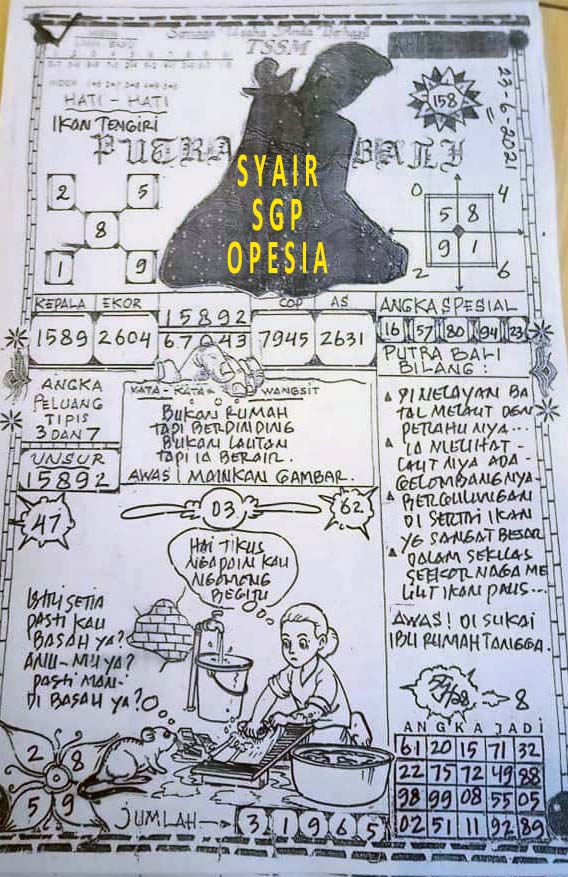 Semoga Usaha Anda Berhasil
TSSM
INDEX
HATI - HATI
IKAN TENGIRI
158
27-6-2021
PUTRA BALI
SYAIR
SGP
OPESIA
2 5
8
1 9
0 4
5 8
9 1
2 6
KEPALA EKOR
1589 2604
15892
67043
COP AS
7945 2631
ANGKA SPESIAL
16 57 80 94 23
PUTRA BALI
BILANG :
ANGKA
PELUANG
TIPIS
3 DAN 7
UNSUR
15892
KATA - KATA = WANGSIT
BUKAN RUMAH
TAPI BERDINDING
BUKAN LAUTAN
TAPI IA BERAIR.
AWAS! MAINKAN GAMBAR.
DI NELAYAN BA
TAL MELAUT DEN
PERAHU NYA...
IA MELIHAT -
LAUT NYA ADA -
GELOMBANG NYA -
BERGULUNGAN
DI SERTAI IKAN
YG SANGAT BESAR
DALAM SEKILAS
SEEKOR NAGA ME
LILIT IKAN PAUS...
AWAS! DI SUKAI
IBU RUMAH TANGGA.
47
03
62
HAI TIKUS
NGAPAIN KAU
NGOMONG
BEGITU
ISTRI SETIA
PASTI KAU
BASAH YA?
ANU-MU YA?
PASTI MAU-
DI BASAH YA?
8
2 8
5 9
JUMLAH → 3 1 9 6 5
ANGKA JADI
61 20 15 71 32
22 75 72 49 88
98 99 08 55 05
02 51 11 92 89